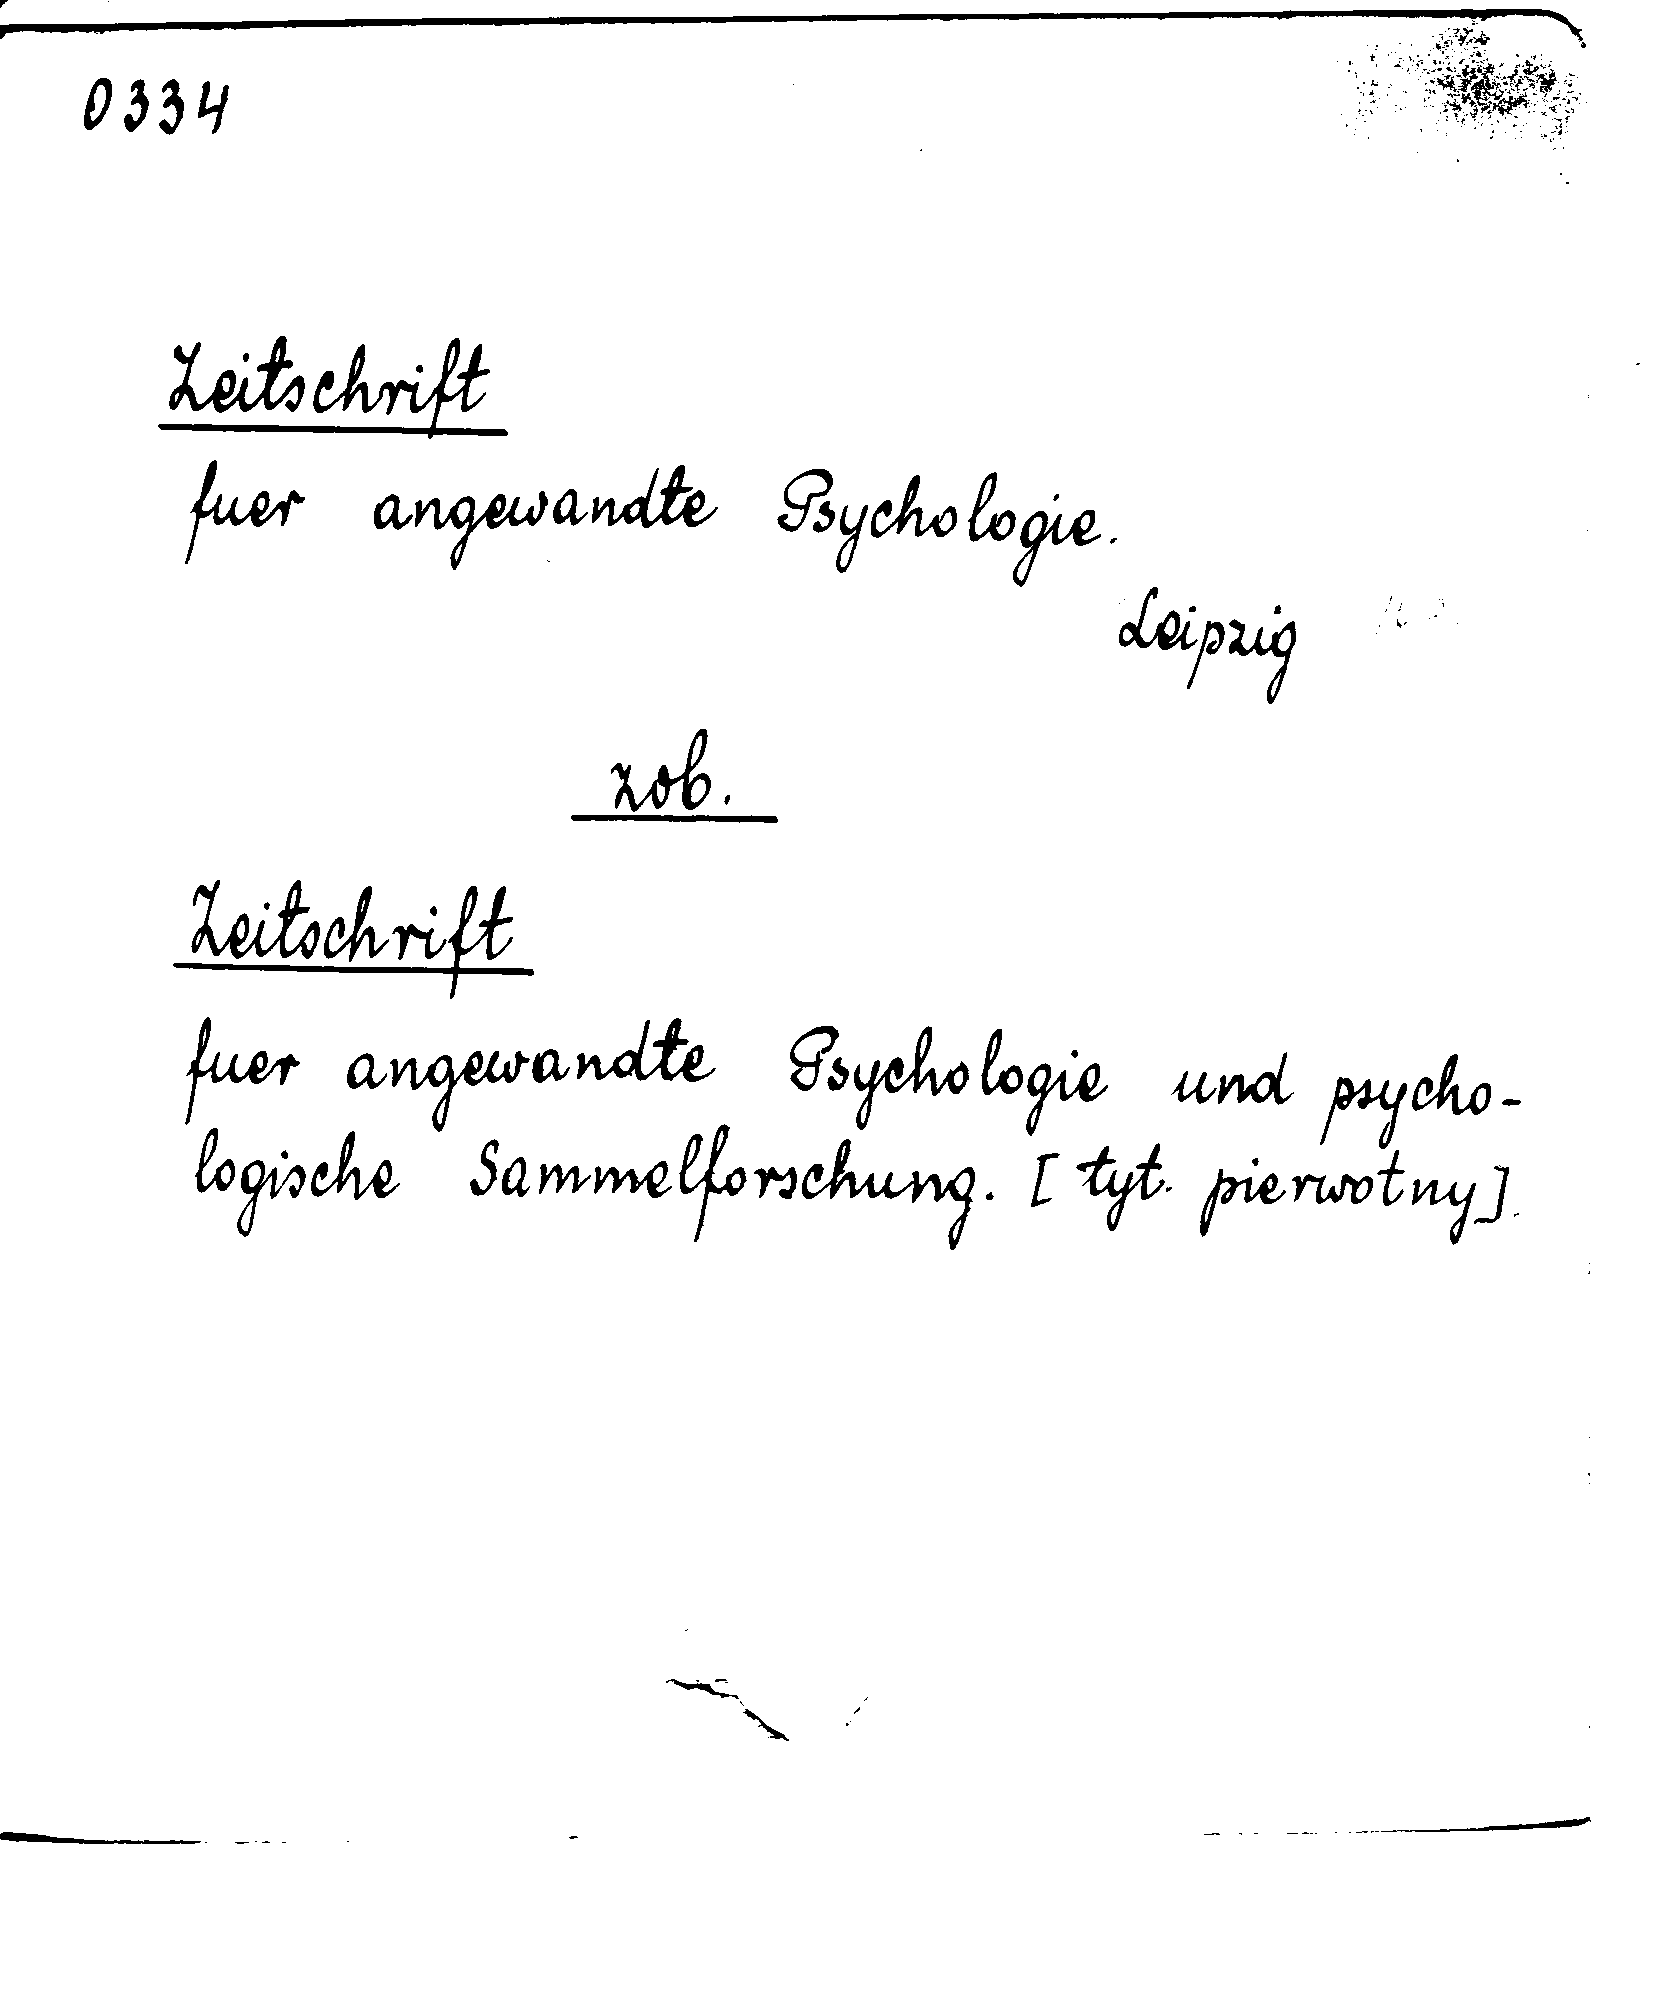 0334
Zeitschrift
fuer angewandte Psychologie.
Leipzig
zob.
Zeitschrift
fuer angewandte Psychologie und psycho-
logische Sammelforschung. [tyt. pierwotny].